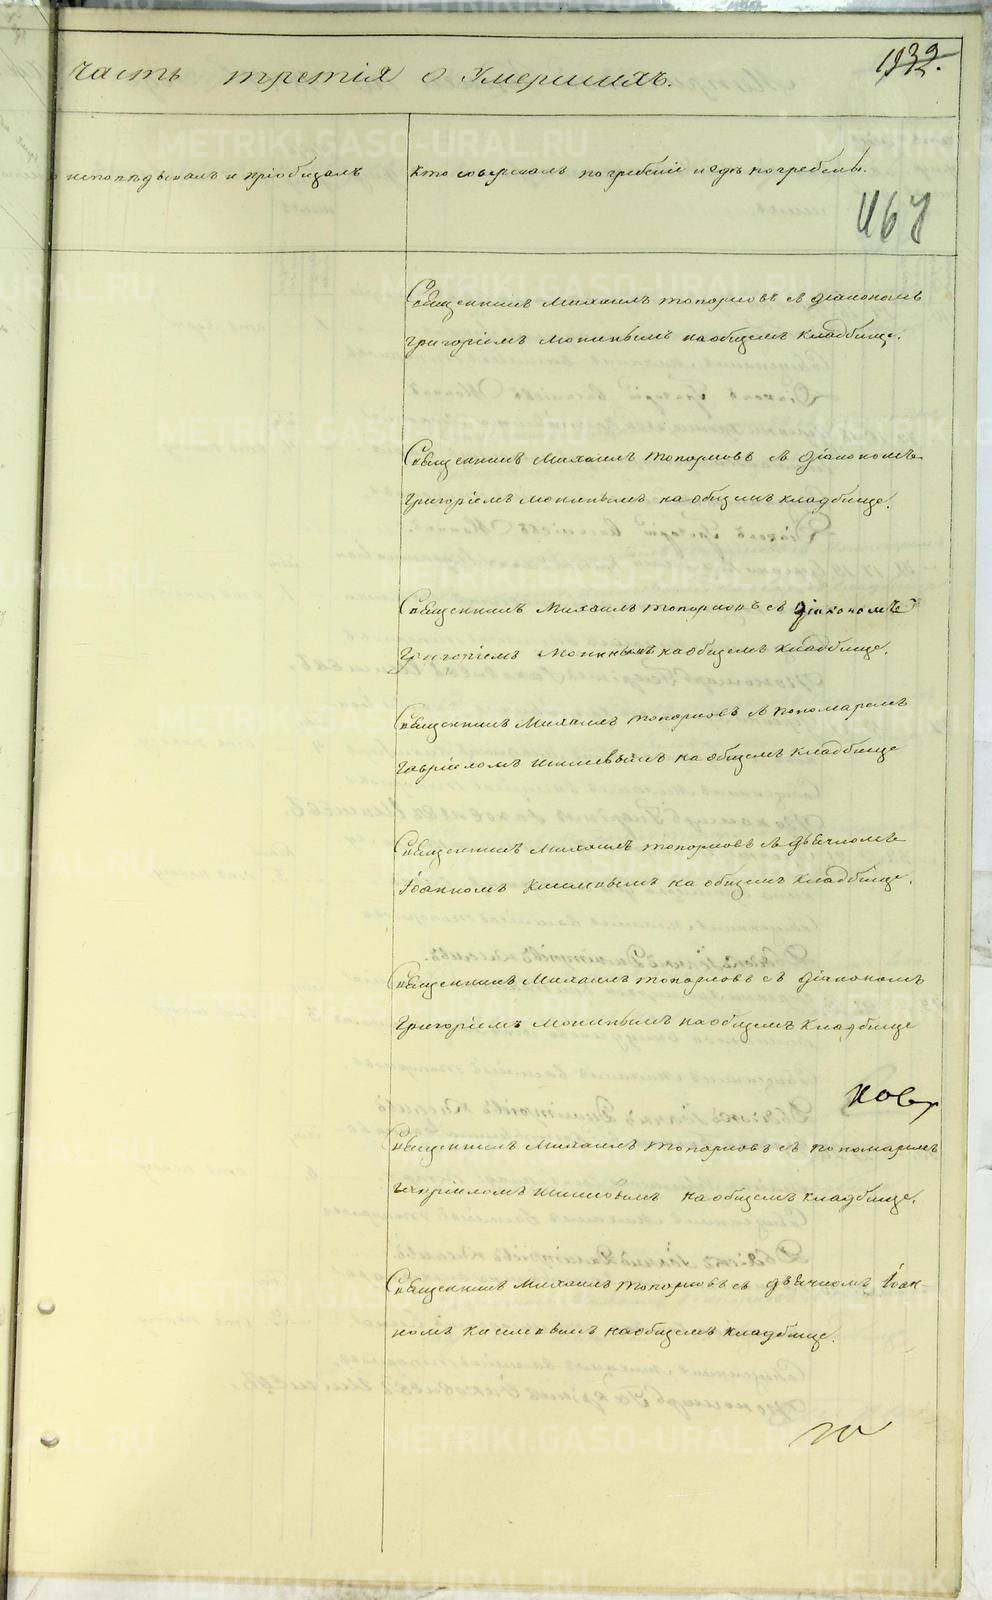 часть третія о умершихъ.
кто исповѣдывалъ и пріобщалъ
кто совершалъ погребеніе и гдѣ погребены.
467
Священникъ Михаилъ Топорковъ съ діакономъ
Григоріемъ Мокинымъ на общемъ кладбище.
Священникъ Михаилъ Топорковъ съ діакономъ
Григоріемъ Мокинымъ на общемъ кладбище.
Священникъ Михаилъ Топорковъ съ діакономъ
Григоріемъ Мокинымъ на общемъ кладбище.
Священникъ Михаилъ Топорковъ съ пономаремъ
Гавріиломъ на общемъ кладбище
Священникъ Михаилъ Топорковъ съ дьячкомъ
Іоанномъ Киселевымъ на общемъ кладбище.
Священникъ Михаилъ Топорковъ съ діакономъ
Григоріемъ Мокинымъ на общемъ кладбище
Священникъ Михаилъ Топорковъ съ пономаремъ
Гавріиломъ на общемъ кладбище.
Священникъ Михаилъ Топорковъ съ дьячкомъ Іоан-
номъ Киселевымъ на общемъ кладбище.
METRIKI.GASO-URAL.RU